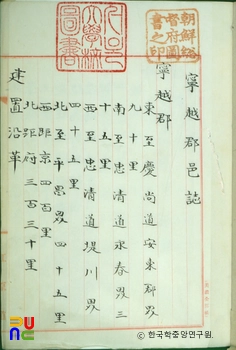 朝鮮總
督府圖
書之印
大學校
圖書
寧越郡邑誌
寧越郡
東至慶尚道安東郡界
九十里
南至忠清道永春界三
十里
西至忠清道堤川界
四十五里
北至平昌界四十五里
西距京四百里
北距府三百三十里
建置沿革
ⓒ 한국학중앙연구원